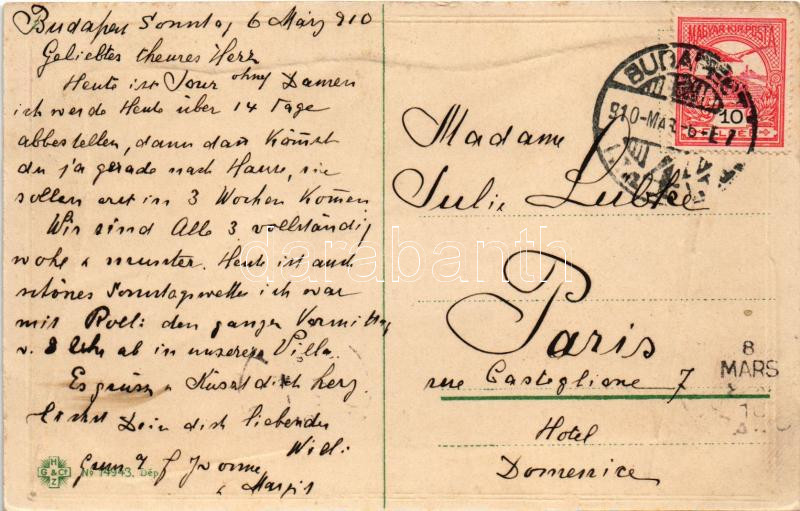 Budapest Sonntag 6 März 910
Geliebtes theures Herz
Heute ist Jour ohne Damen
ich werde Heute über 14 Tage
abbestellen, dann dan Kom̄st
du ja gerade nach Hause, sie
sollen erst in 3 Wochen Kom̄en
Wir sind Alle 3 vollständig
wohl & munter. Heute ist auch
schönes Sonntagswetter ich war
mit Rolli den ganzen Vormittag
v. 8 Uhr ab in unserer Villa
Es grüsst & Küsst dich herz
lichst Dein dich liebender
Willi
Yvonne
& Margit
H
G & Co
Z
No 14943. Dép.
MAGYAR KIR. POSTA
10
FILLÉR
BUDAPEST
910-MAR-6-E7
Madame
Julie Lubke
Paris
rue Castiglione 7
Hotel
Domenice
8
MARS
10
darabanth